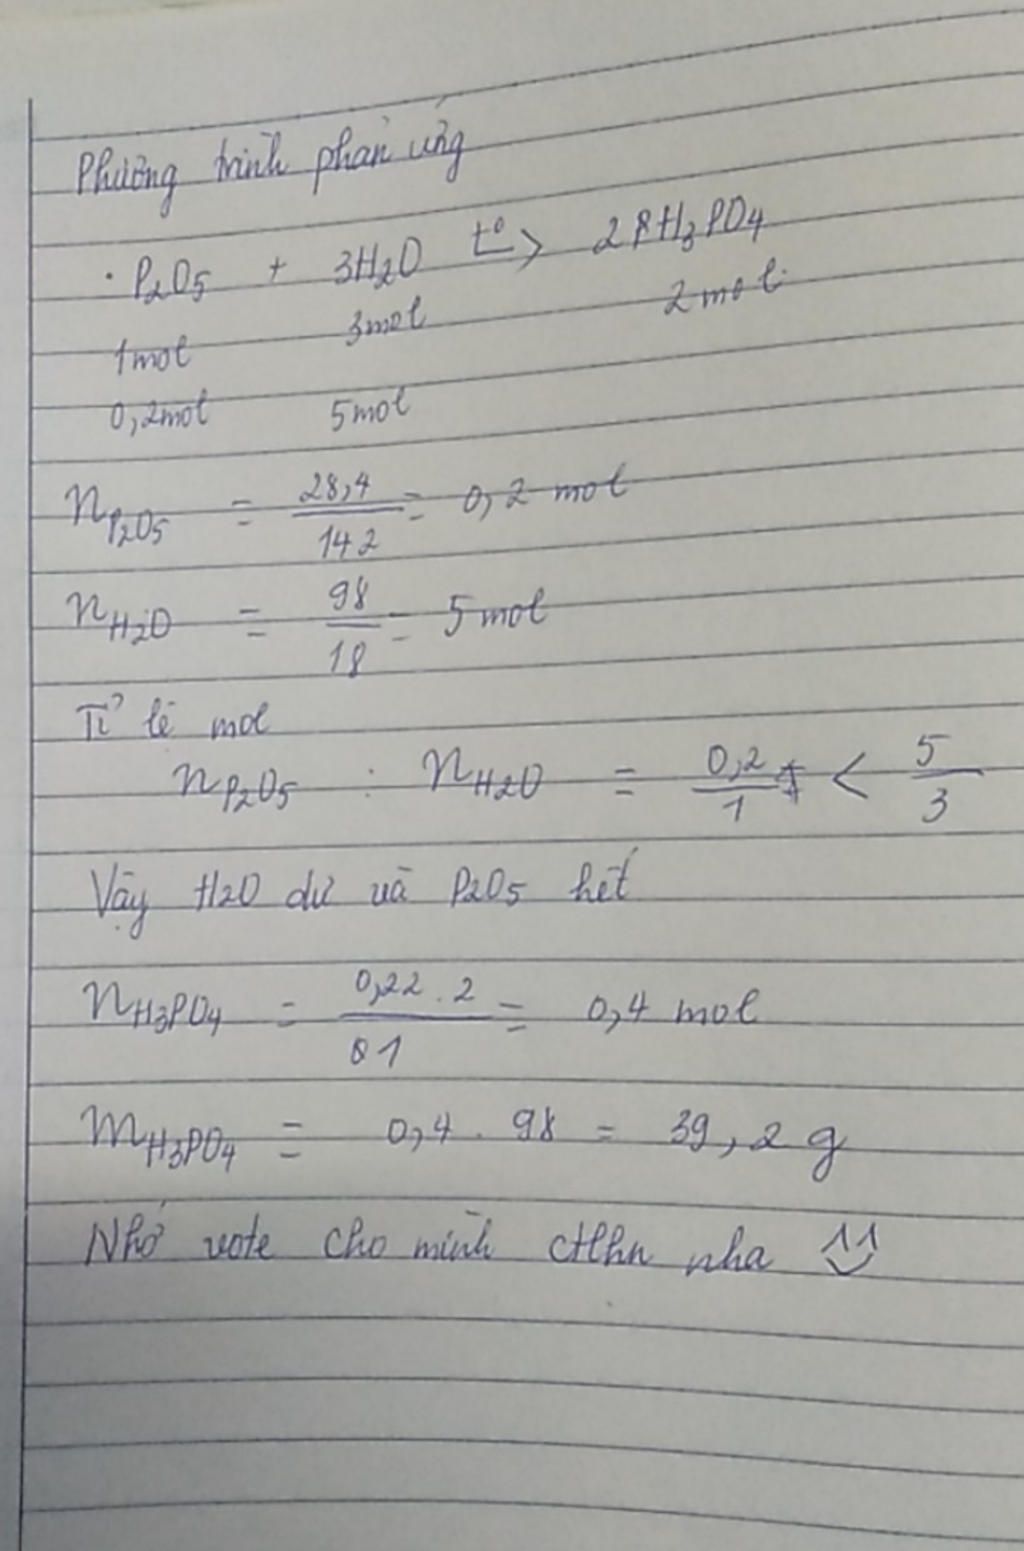 Phương trình phản ứng
· P2O5 + 3H2O t° -> 2 H3PO4
1mol 3mol 2mol
0,2mol 5mol
nP2O5 = 28,4/142 = 0,2 mol
nH2O = 98/18 = 5 mol
Tỉ lệ mol
nP2O5 : nH2O = 0,2/1 < 5/3
Vậy H2O dư và P2O5 hết
nH3PO4 = 0,22.2/01 = 0,4 mol
mH3PO4 = 0,4.98 = 39,2 g
Nhớ vote cho mình ctlhn nha ^^